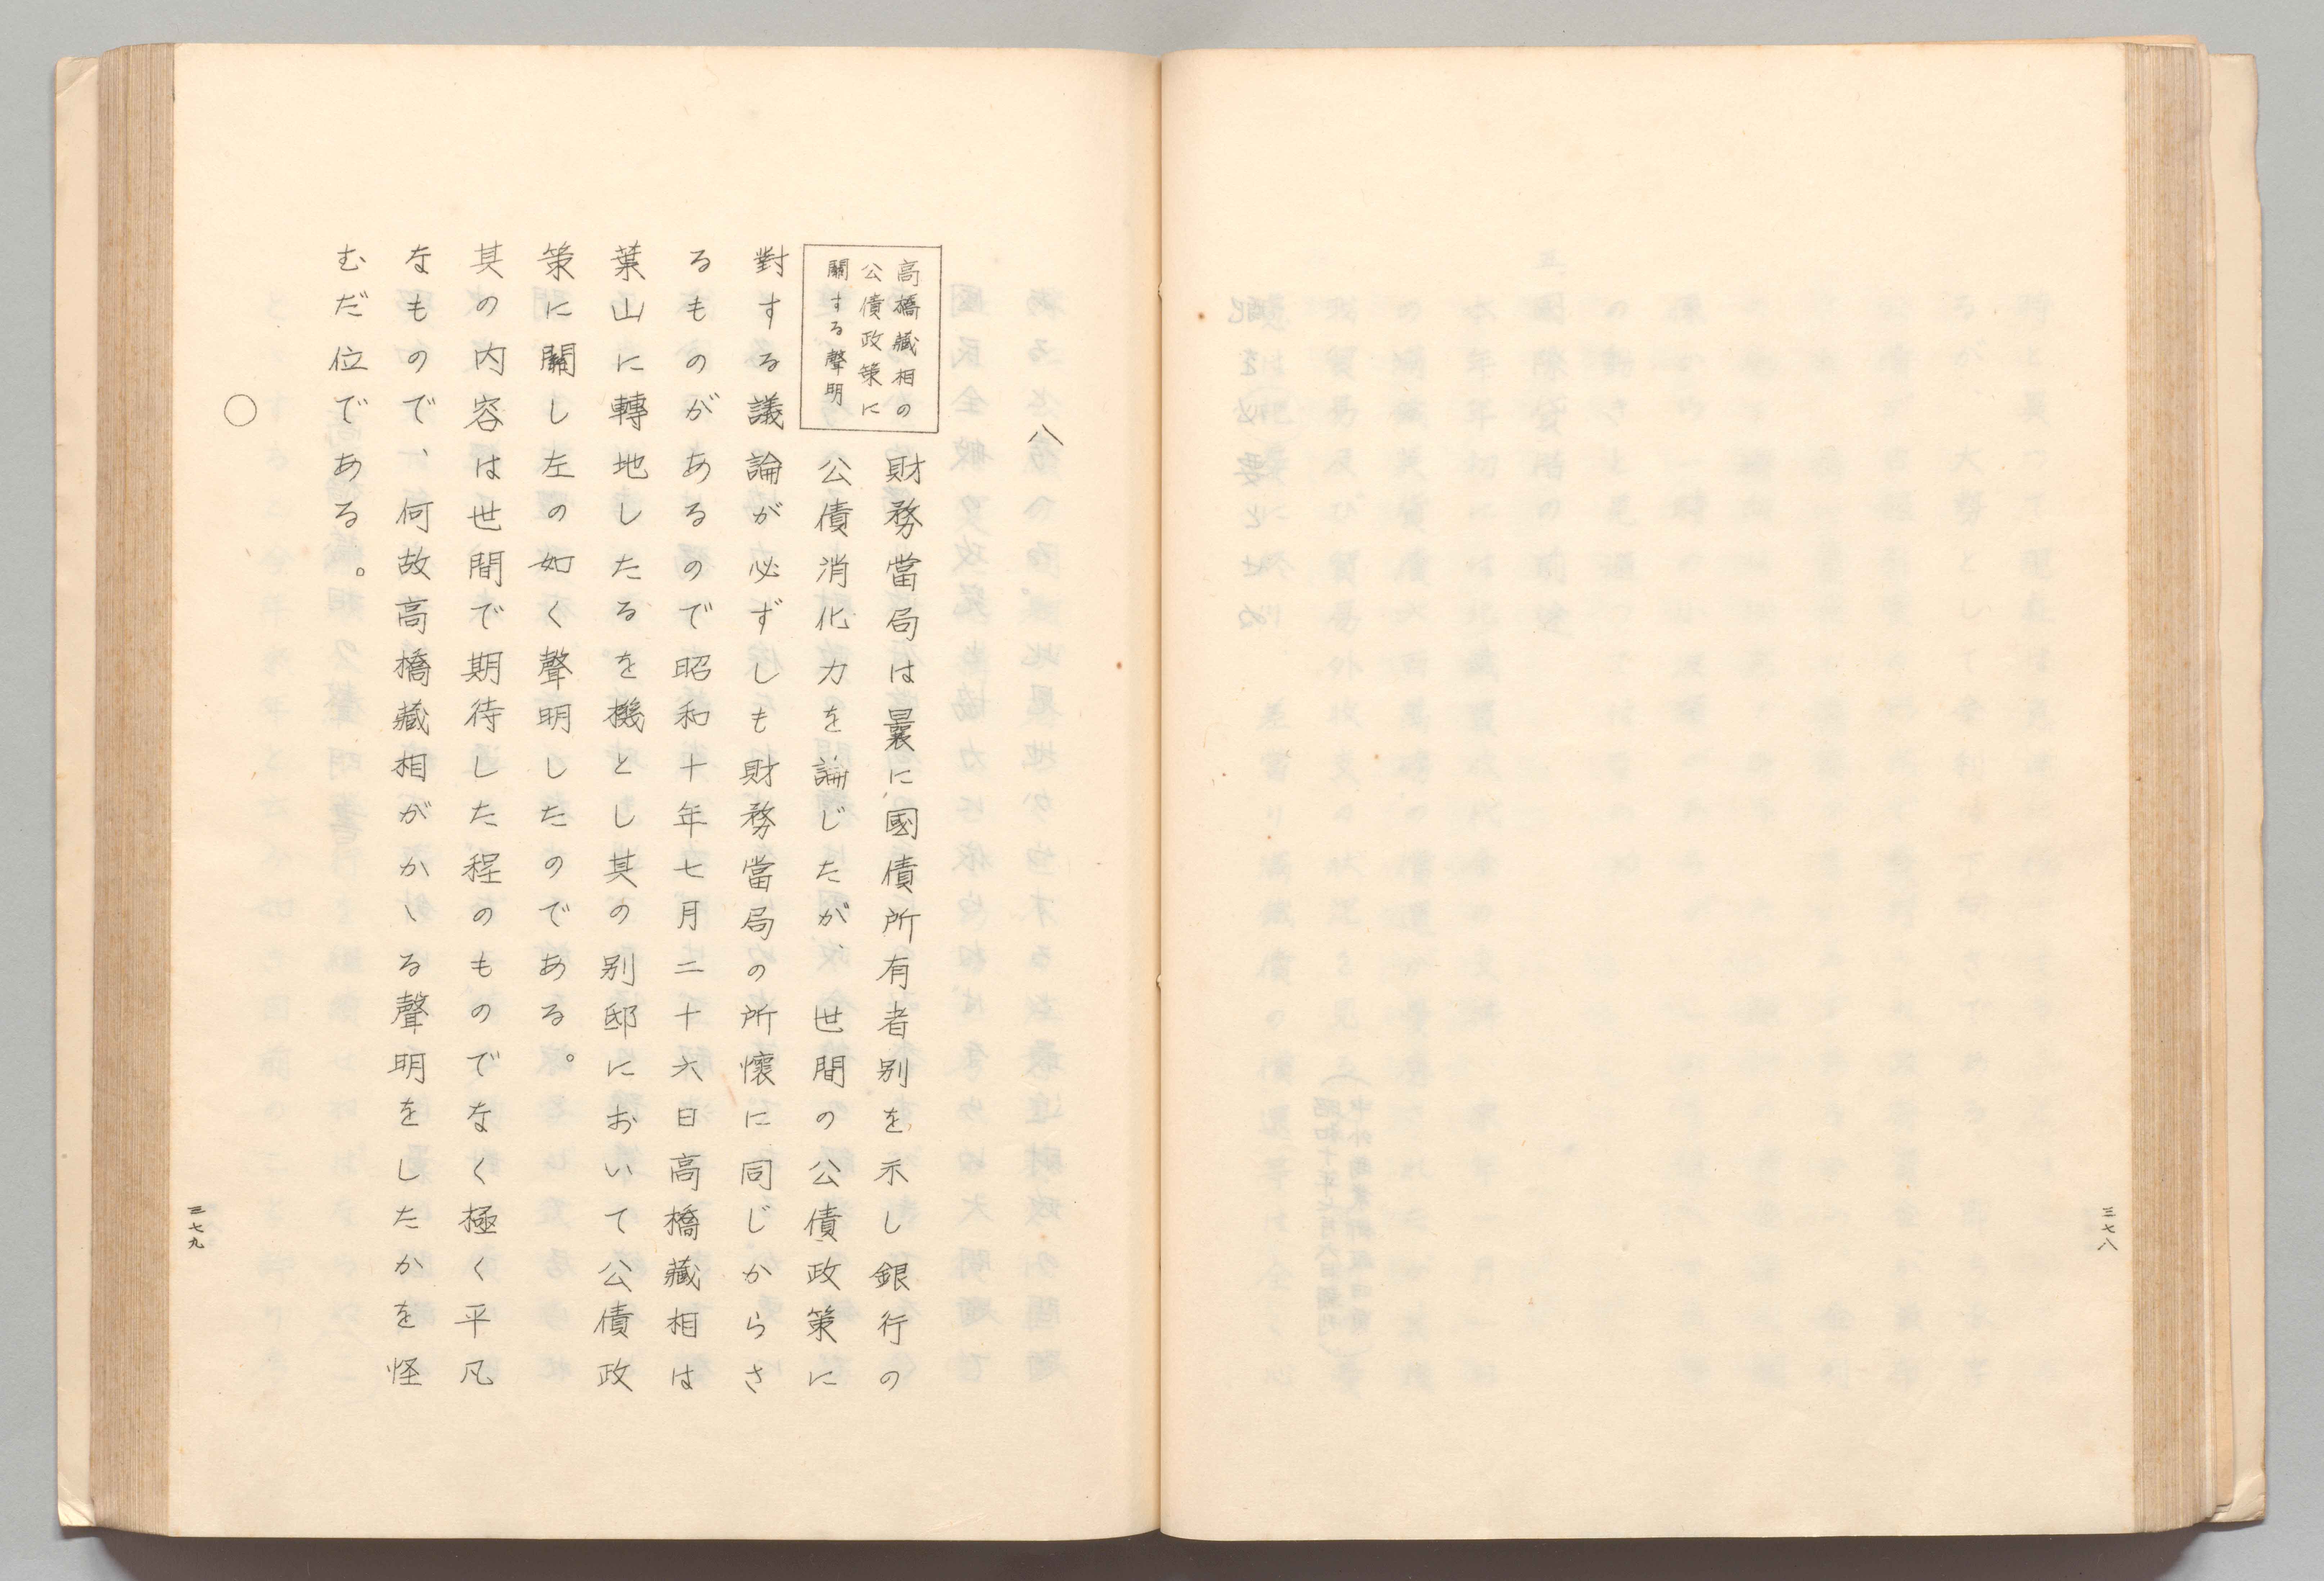 三七八
八
高橋藏相の
公債政策に
關する聲明
財務當局は曩に國債所有者別を示し銀行の
公債消化力を論じたが、世間の公債政策に
對する議論が必ずしも財務當局の所懷に同じからさ
るものがあるので昭和十年七月二十六日高橋藏相は
葉山に轉地したるを機とし其の別邸において公債政
策に關し左の如く聲明したのである。
其の內容は世間で期待した程のものでなく極く平凡
なもので、何故高橋藏相がかゝる聲明をしたかを怪
むだ位である。
○
三七九